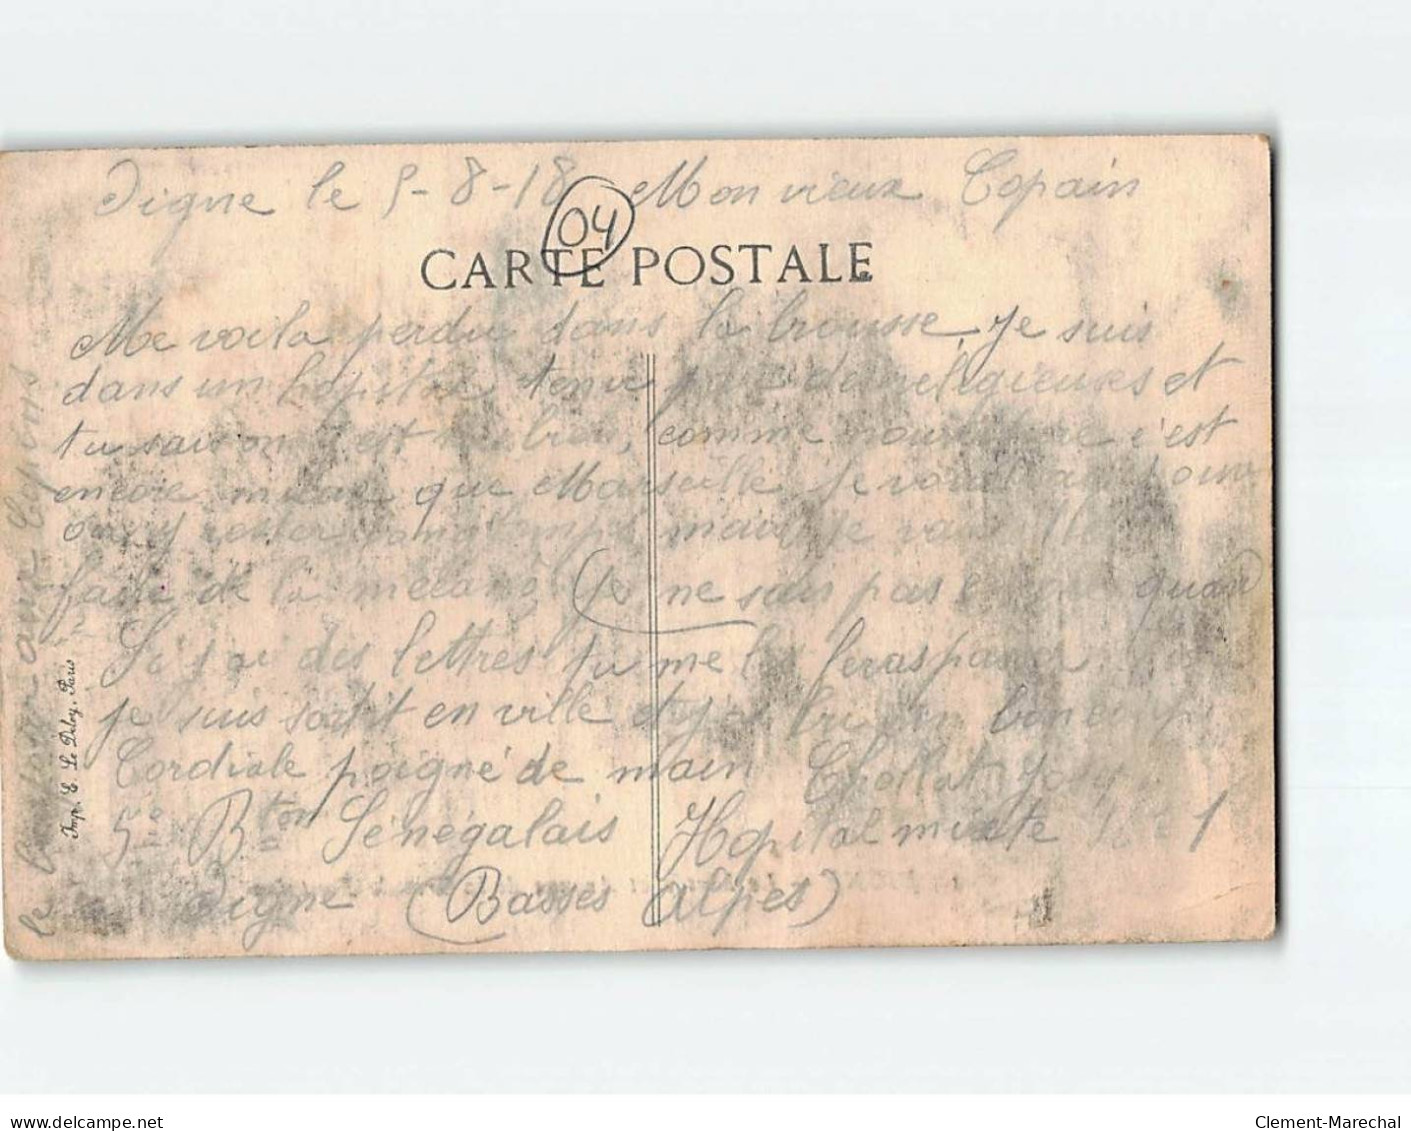 Digne le 5-8-18 Mon vieux Copain
04
CARTE POSTALE
Me voila perdu dans la brousse Je suis
dans un hopital tenu par des religieuses et
tu sais on est bien, comme nourriture c'est
encore mieux que Marseille je voudrais pouvoir
y rester longtemps mais je vais
faire de la mecano (Je ne sais pas encore quand)
Si j'ai des lettres tu me les feras passer
je suis sortit en ville et j'ai bu un bon coup
Cordiale poigne de main Chollat Josy
5e Bton Sénégalais Hopital mixte No 1
Digne (Basses Alpes)
le Bonjour aux Copins
Imp. E. Le Deley, Paris
delcampe.net
Clement-Marechal